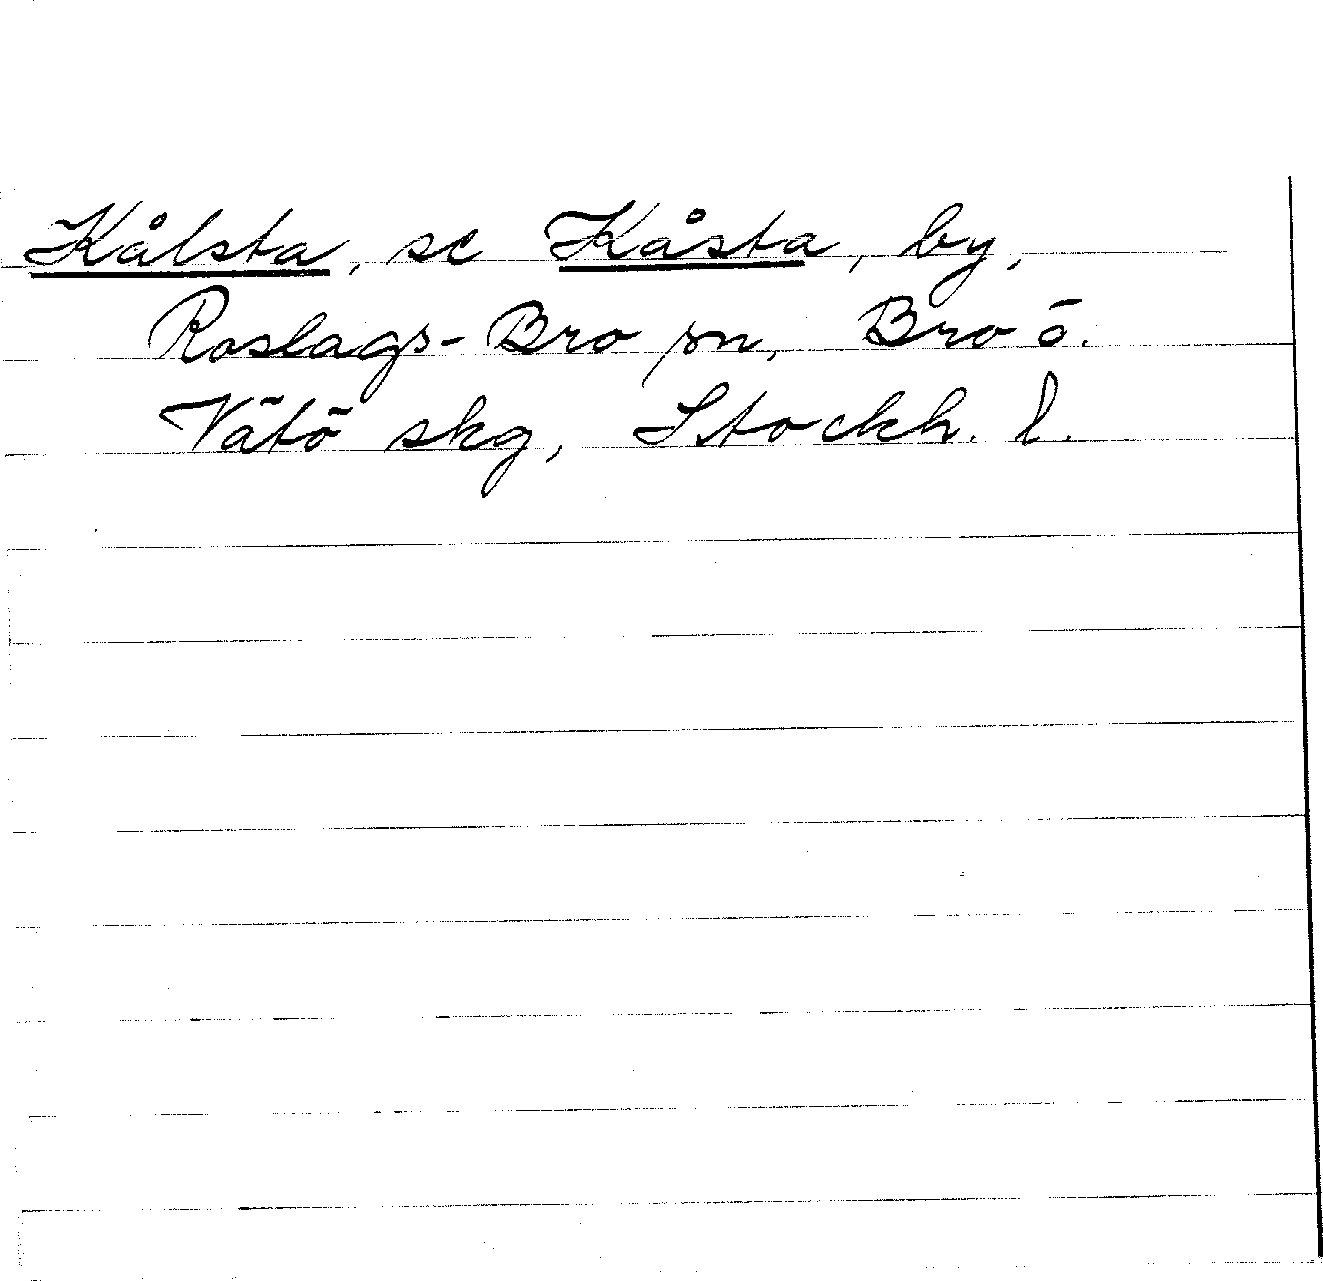 Kålsta, se Kåsta, by,
Roslags-Bro sn, Bro ö.
Vätö skg, Stockh. l.